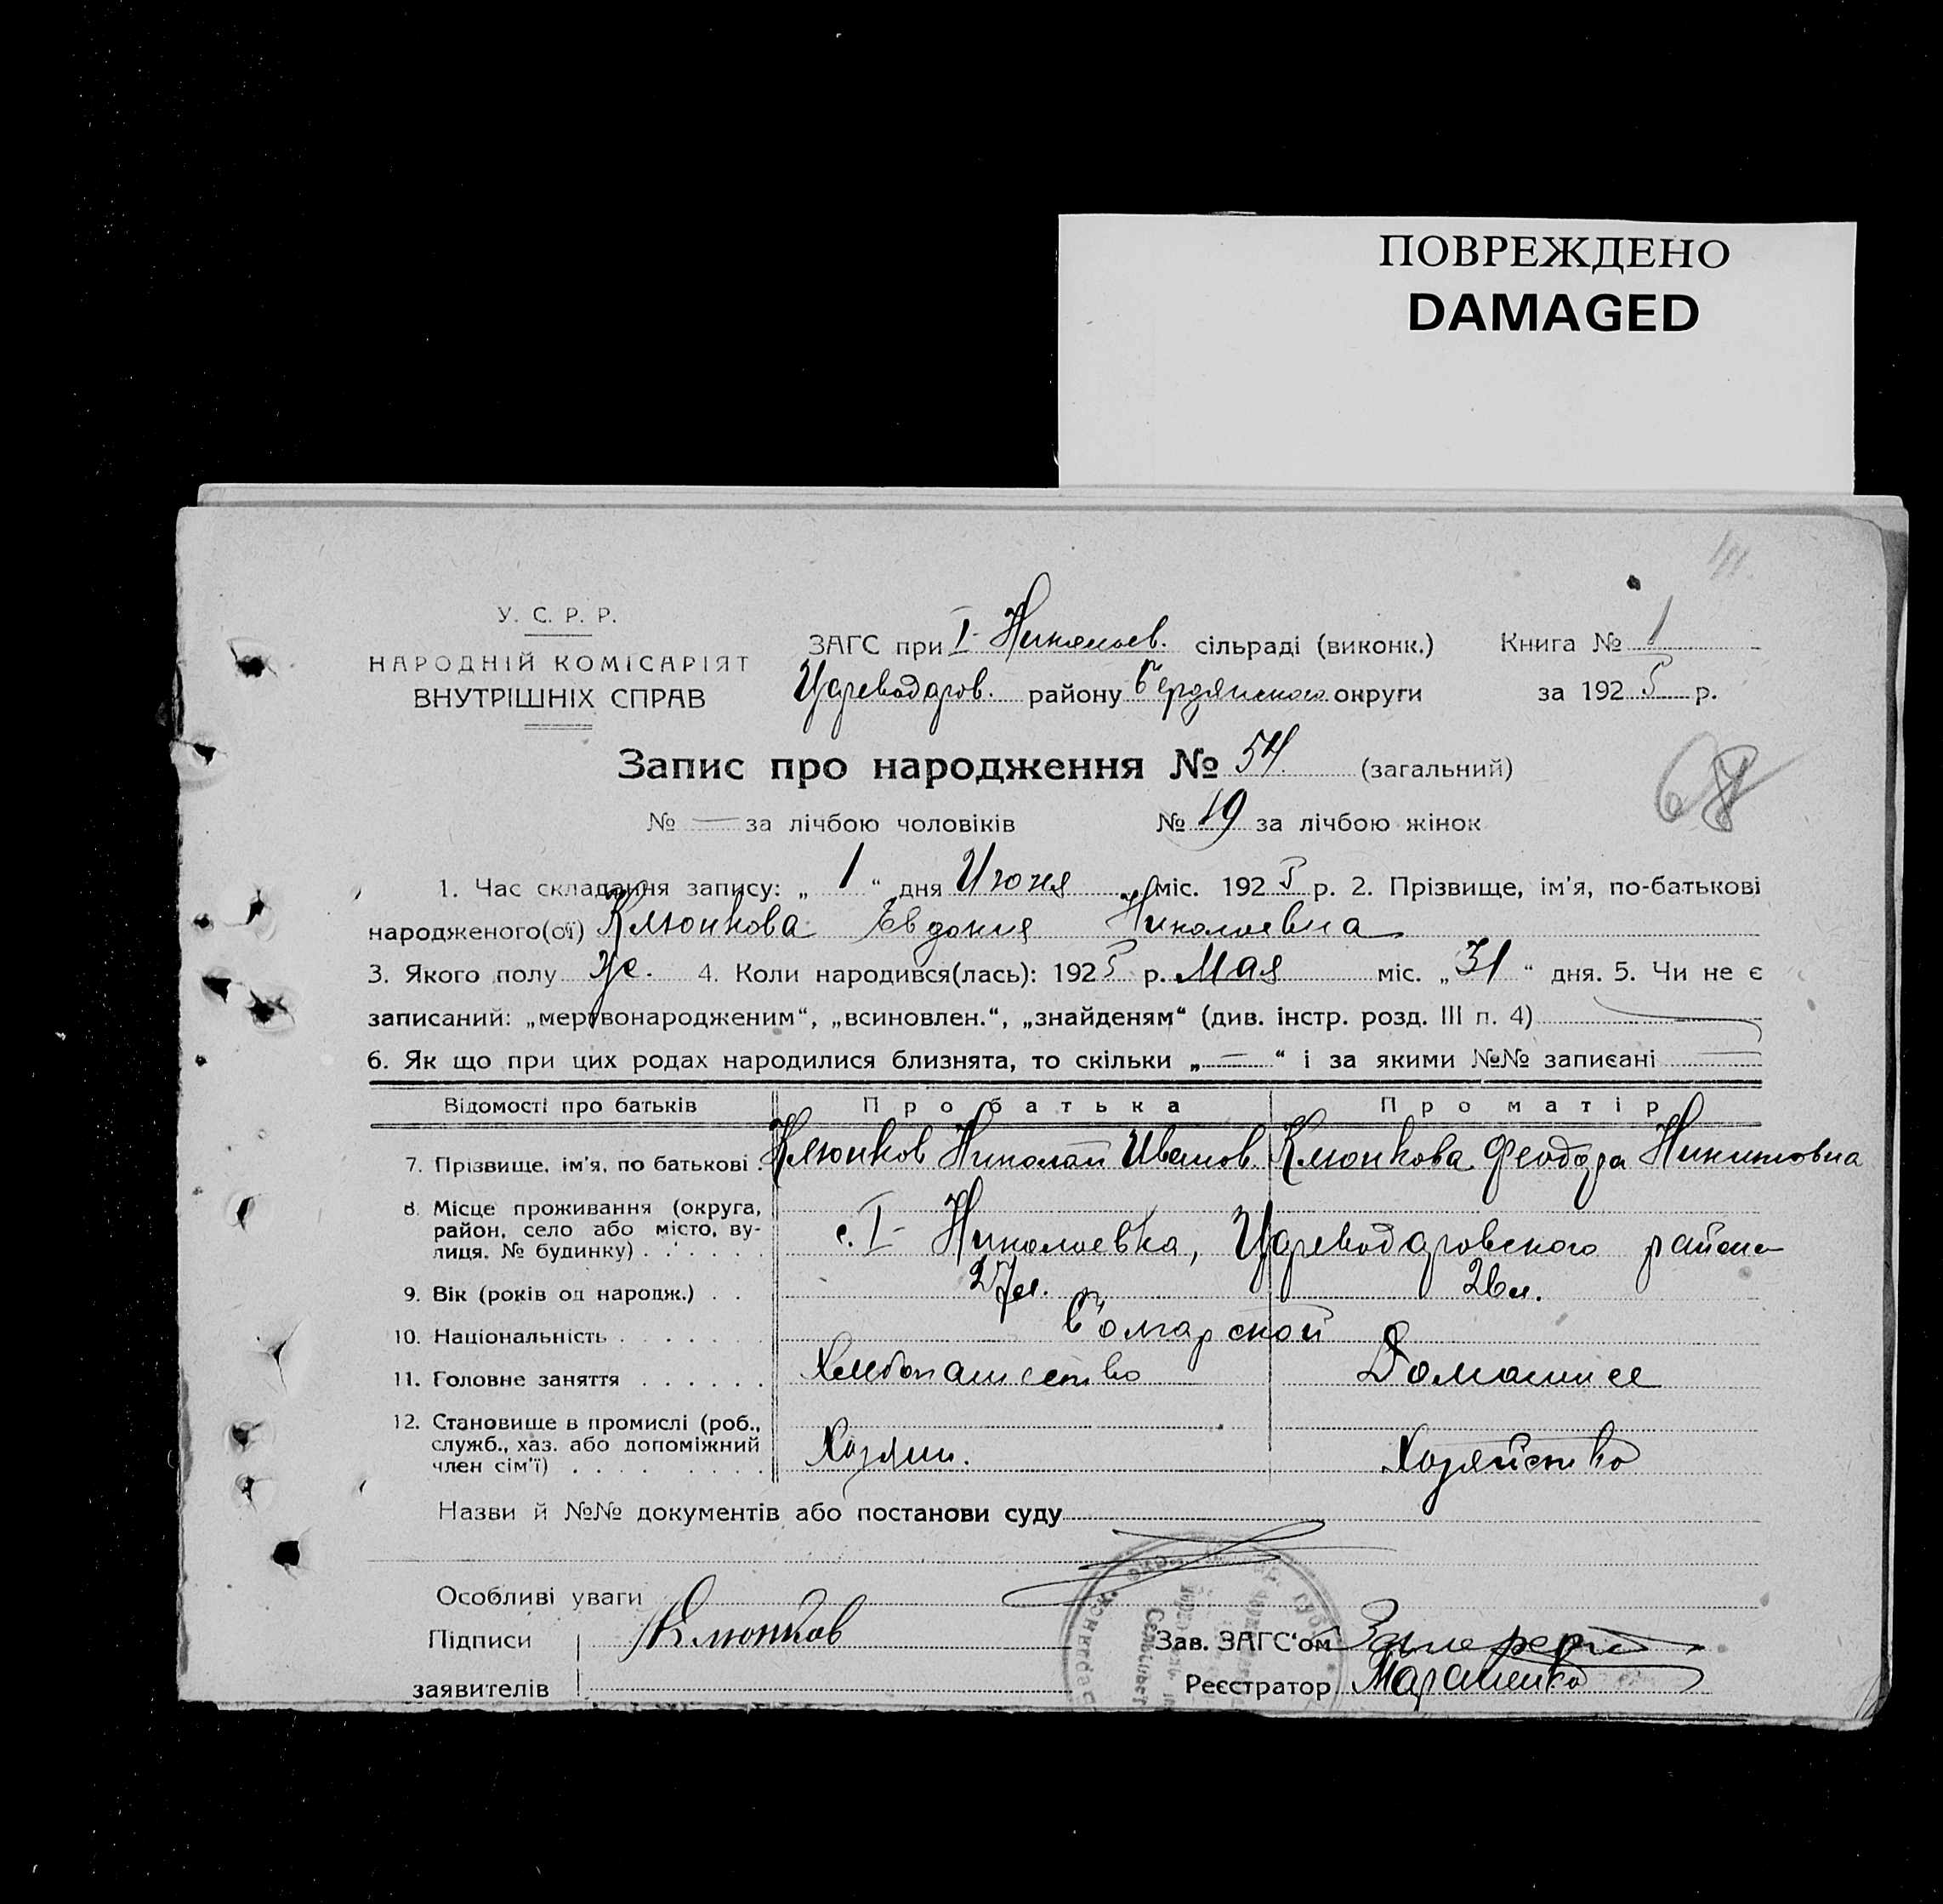 ПОВРЕЖДЕНО
DAMAGED
У. С. Р. Р.
НАРОДНІЙ КОМІСАРІЯТ
ВНУТРІШНІХ СПРАВ
ЗАГС при I- Николаев. сільраді (виконк.) Книга № 1
Цареводаров. району Бердянского округи за 1925 р.
Запис про народження № 54. (загальний)
68
№ — за лічбою чоловіків № 19 за лічбою жінок
1. Час складання запису: „ 1 “ дня Июня міс. 1925 р. 2. Прізвище, ім'я, по-батькові
народженого(ої) Клюнкова Евдокия Николаевна
3. Якого полу ж. 4. Коли народився(лась): 1925 р. Мая міс. „31“ дня. 5. Чи не є
записаний: „мертвонародженим“, „всиновлен.“, „знайденям“ (див. інстр. розд. III п. 4) —
6. Як що при цих родах народилися близнята, то скільки „—“ і за якими №№ записані —
Відомості про батьків Про батька Про матір
7. Прізвище, ім'я, по батькові . Клюнков Николай Иванов. Клюнкова Феодора Никитовна
8. Місце проживання (округа,
район, село або місто, ву-
лиця, № будинку) . . . . . . с. I- Николаевка, Цареводаровского района
9. Вік (років од народж.) . . 27 л. 26 л.
10. Національність . . . . . . . Болгарской
11. Головне заняття . . . . . . Хлебопашество Домашнее
12. Становище в промислі (роб.,
служб., хаз. або допоміжний
член сім'ї) . . . . . . . . Хозяин. Хозяйство
Назви й №№ документів або постанови суду
Особливі уваги
Підписи Клюнков Зав. ЗАГС'ом
заявителів Реєстратор Мараненко